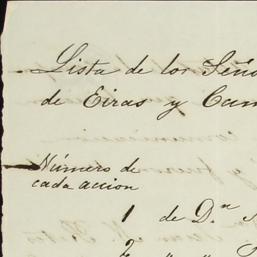 Lista de los Seño
de Eiras y Cam
Número de
cada accion
1 de D.ⁿ
2 " "